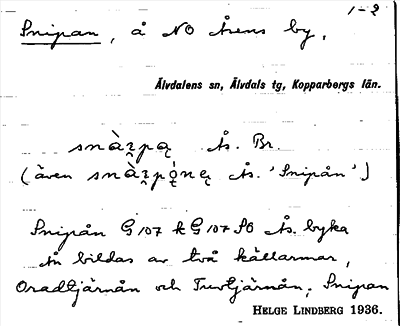 1-2
Snipan, å NO Åsens by.
Älvdalens sn, Älvdals tg, Kopparbergs län.
Ås. Br.
(även Ås. 'Snipån')
Snipån G 107 k G 107 Ås. byka
Ån bildas av två källarmar,
Oradtjärnån och Tuvtjärnån, Snipan
HELGE LINDBERG 1936.